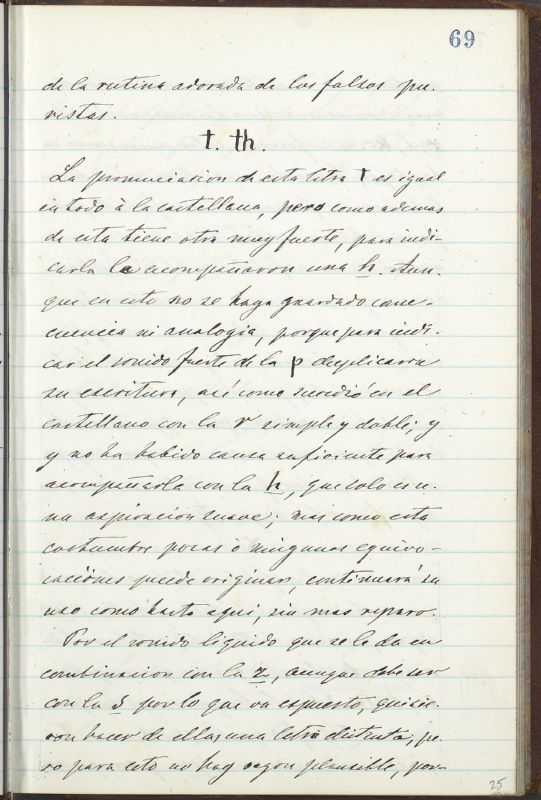 69
de la rutina adorada de los falsos pu-
ristas.
t. th.
La pronunciacion de esta letra t es igual
en todo á la castellana, pero como ademas
de esta tiene otra muy fuerte, para indi-
carla la acompañaron una h. Aun-
que en esto no se haya guardado conse-
cuencia ni analogia, porque para indi-
car el sonido fuerte de la p duplicaron
su escritura, así como sucedió en el
castellano con la r simple y doble; y
y no ha habido causa suficiente para
acompañarla con la h, que solo es u-
na aspiracion suave; mas como esta
costumbre pocas ó ningunas equivo-
caciones puede originar, continuará su
uso como hasta aqui, sin mas reparo.
Por el sonido líquido que se le da en
combinacion con la z, aunque debe ser
con la s por lo que va espuesto, quisie-
ron hacer de ellas una letra distinta, pe-
ro para esto no hay razon plausible, por-
25